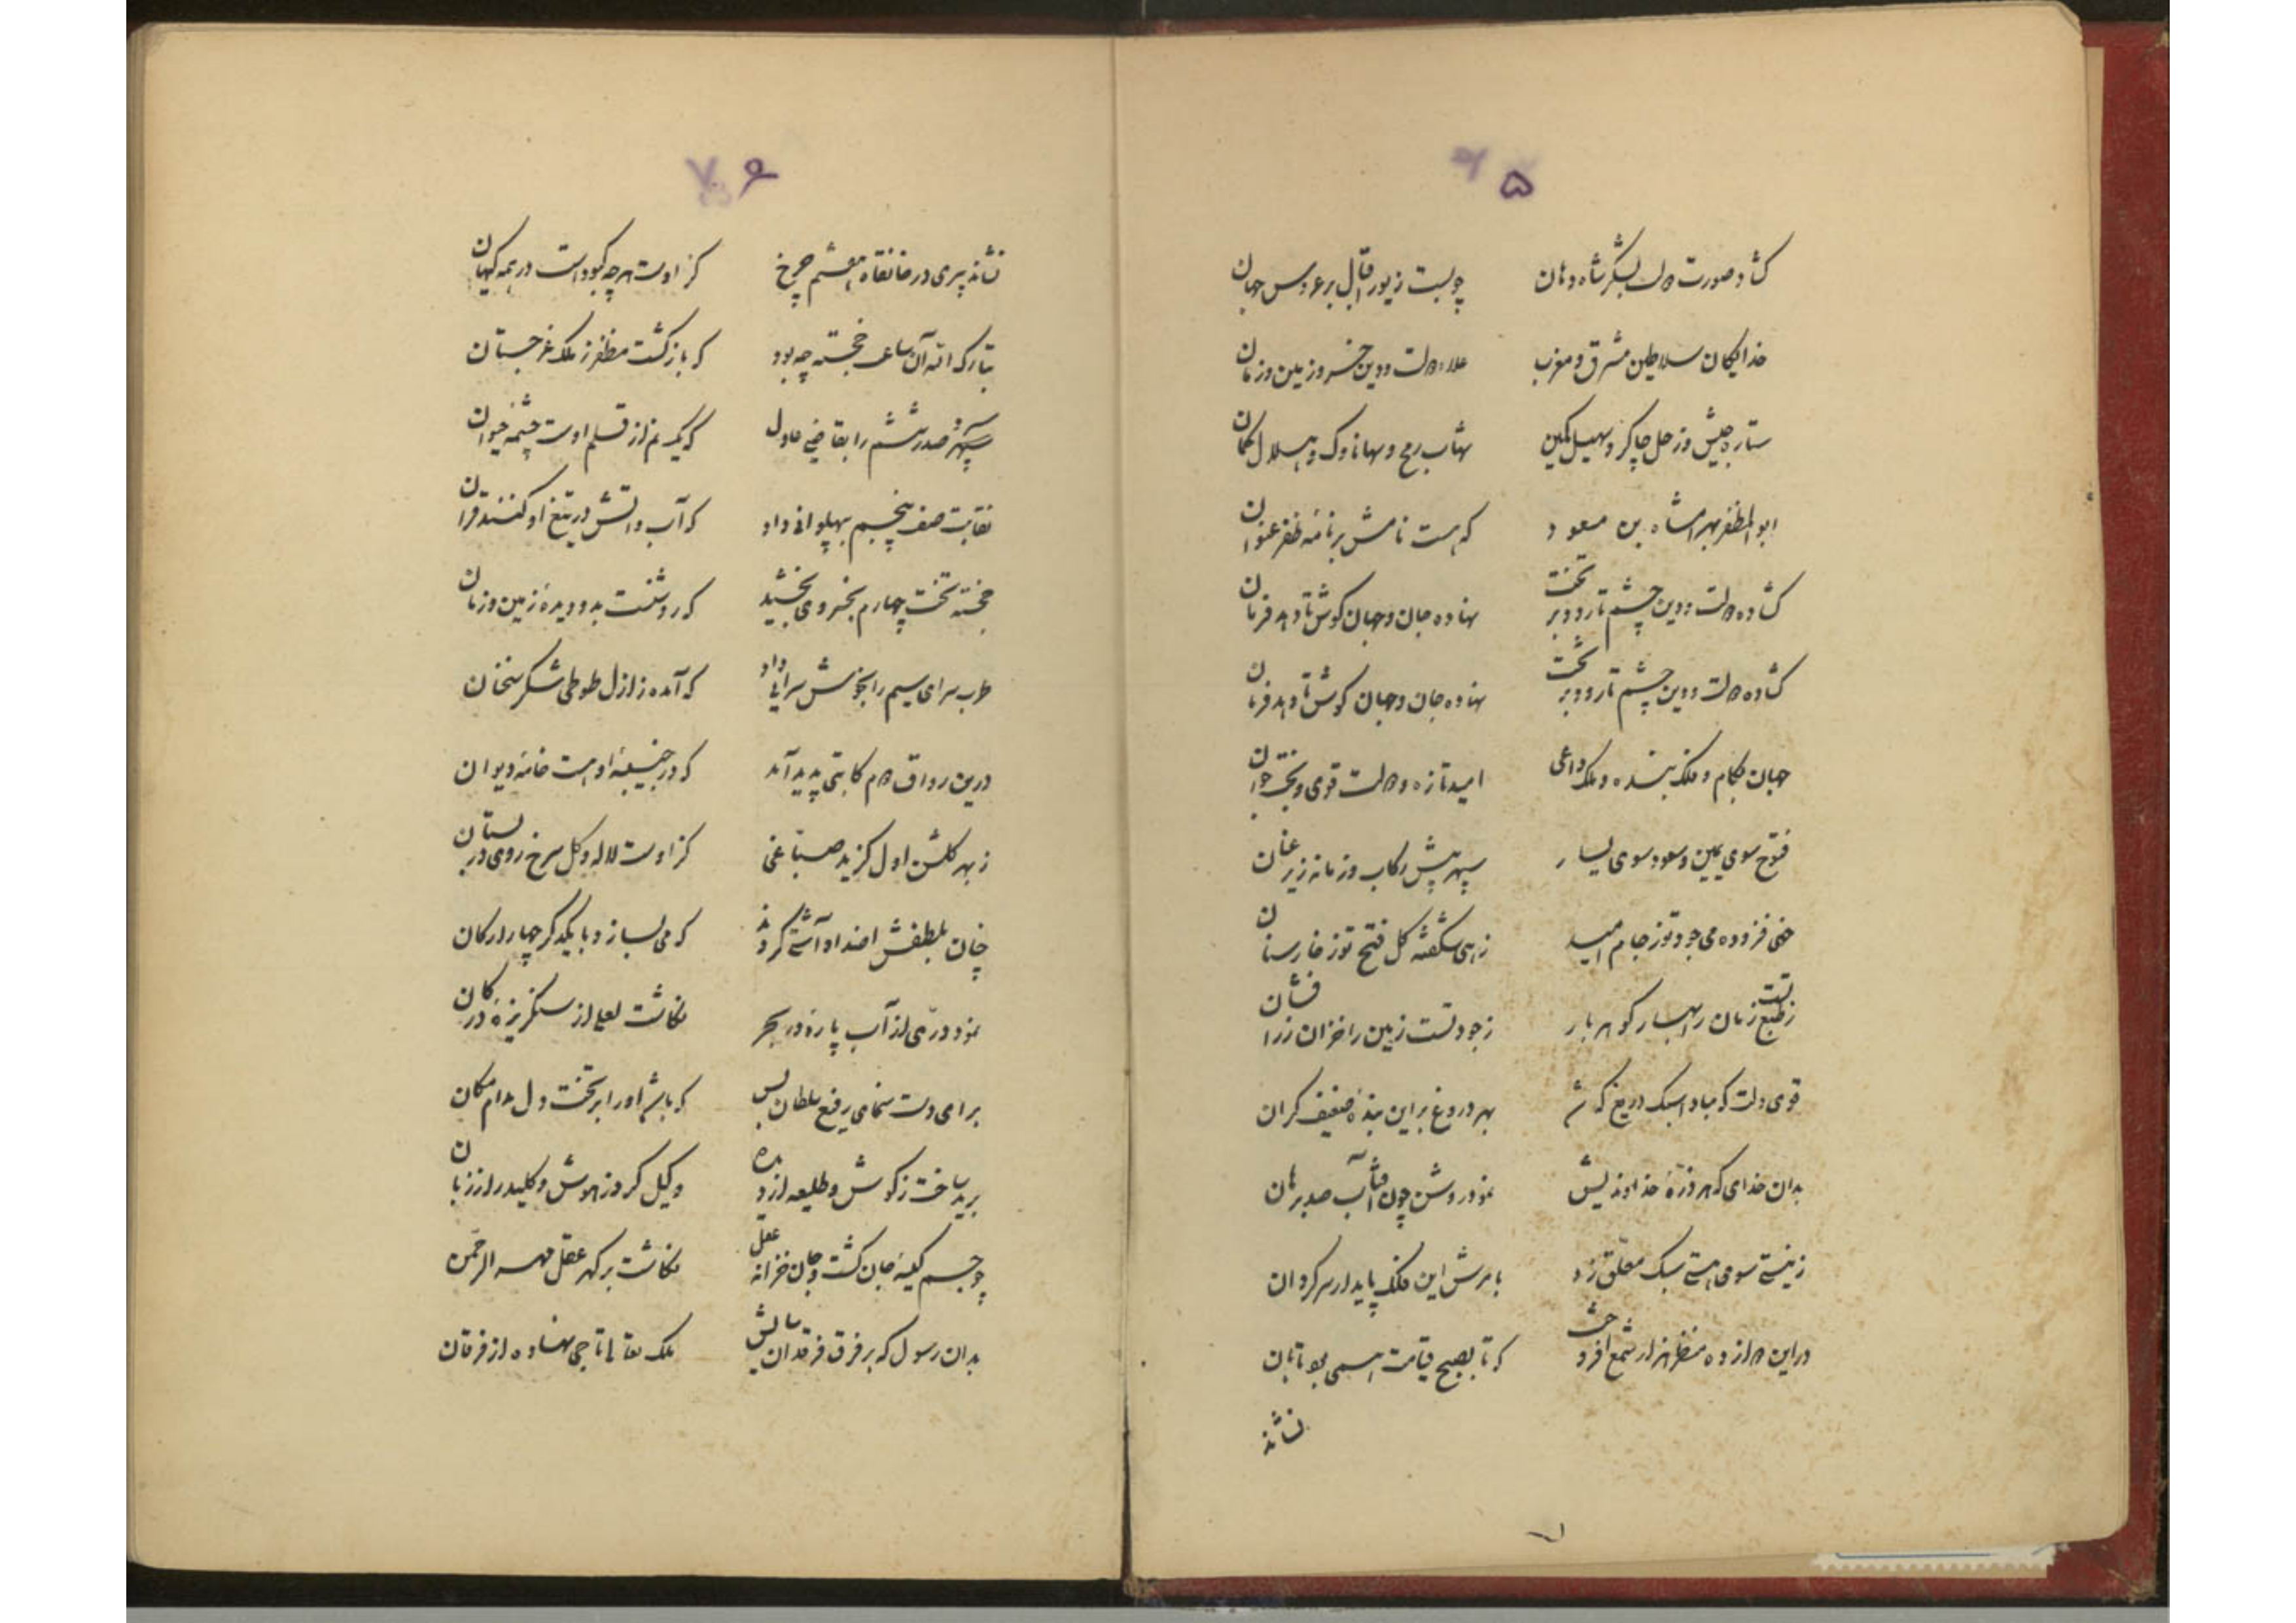 ۵
گشاد صورت دولت بشکر شاه دهان چو بست زیور اقبال بر عروس جهان
خدایگان سلاطین مشرق و مغرب علاء دولت و دین خسرو زمین و زمان
ستاره جیش و زحل چاکر و سهیل نگین شهاب رمح و سها ناوک و هلال کمان
ابوالمظفر بهرامشاه بن مسعود که هست نامش بر نامه ظفر عنوان
گشاده دولت و دین چشم تا رود بر تخت نهاده جان و جهان گوش تا دهد فرمان
گشاده دولت و دین چشم تا رود بر تخت نهاده جان و جهان گوش تا دهد فرمان
جهان بکام و فلک بنده و ملک داعی امید تازه و دولت قوی و بخت جوان
فتوح سوی یمین و سعود سوی یسار سپهر پیش رکاب و زمانه زیر عنان
خهی فزوده می جود تو ز جام امید زهی شکفته گل فتح تو ز خارستان
ز طبع تست زمان را بهار گوهر بار ز جود تست زمین را خزان زرافشان
قوی دلت که مبادا سبک دریغ که شد بهر دروغ بر این بنده ضعیف گران
بدان خدای که هر ذره خداوندیش نمود روشن چون آفتاب صد برهان
ز نیستی سوی هستی سبک معلق زد بامرش این فلک پایدار سرگردان
در این دوازده منظر هزار شمع افروخت که تا بصبح قیامت همی بود تابان
نشاند
۶
نشاند پیری در خانقاه هفتم چرخ کز اوست هرچه کبود است در همه گیهان
تبارک الله آن ساعت خجسته چه بود که بازگشت مظفر ز ملک غرجستان
سپهر و صدر ششم را بقاضی عادل که یک نم از قلم اوست چشمه حیوان
نقابت صف پنجم بپهلوانی داد که آب و آتش در تیغ او کنند قران
خجسته تخت چهارم بخسروی بخشید که روشنست بدو دیده زمین و زمان
طرب سرای سیم را بخوش سرایی داد که آمده ز ازل طوطی شکر سخنان
درین رواق دوم کاتبی پدید آمد که در جنیبه او هست خامه دیوان
ز بهر گلشن اول گزید صباغی کز اوست لاله و گل سرخ روی در بستان
چنان بلطفش اضداد آشتی کردند که می بسازد با یکدگر چهار ارکان
نمود دری از آب پاره در بحر نگاشت لعلی از سنگریزه در کان
برای دست نمای رفیع سلطان بس که باشد او را بر تخت دل مدام مکان
برید ساخت ز گوش و طلیعه از دیده وکیل کرد ز هوش و کلیددار از زبان
چو جسم کیسه جان گشت و جان خزانه عقل نگاشت بر گهر عقل مهر الرحمن
بدان رسول که بر فرق فرقدان سایش ملک تعالی تاجی نهاده از فرقان